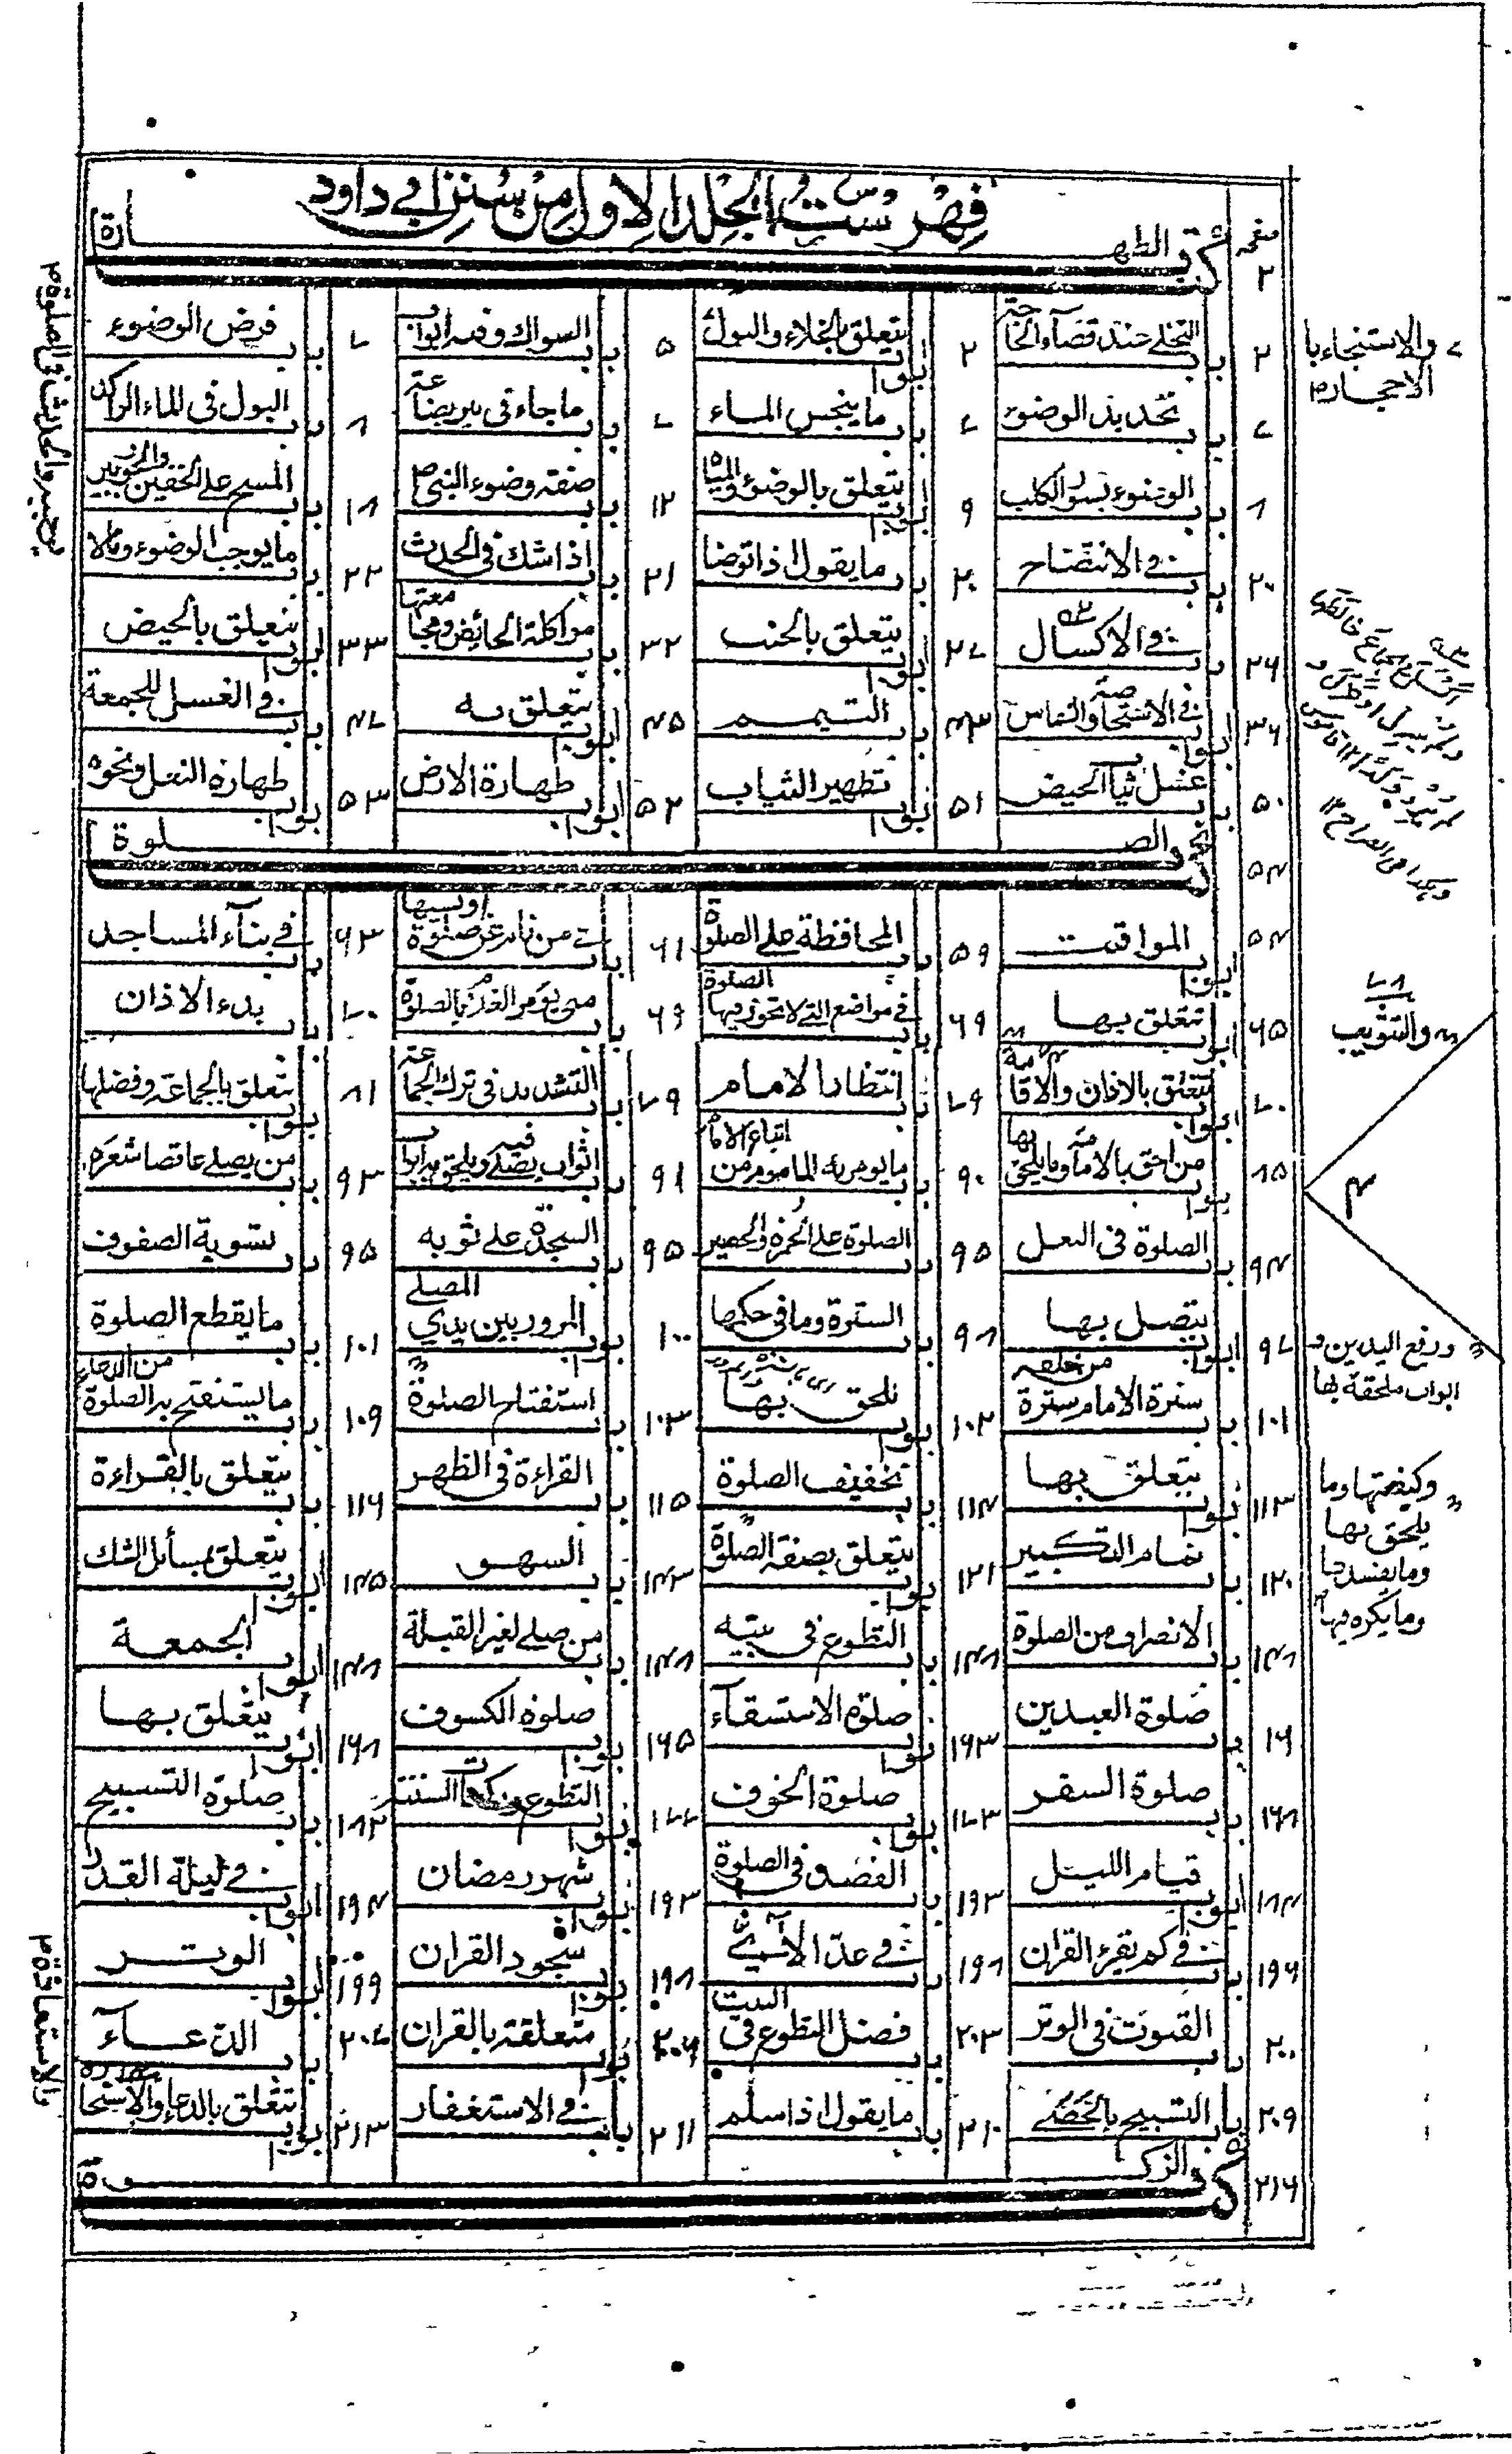 فهرست الجلد الاول من سنن ابی داود
صفحه
۲ کتاب الطهارة
۲ باب التخلے عند قضاء الحاجة ۲ ابواب یتعلق بالخلاء والبول ۵ باب السواك وفیه ابواب ۷ باب فرض الوضوء
۷ باب تجدید الوضوء ۷ باب ما ینجس الماء ۷ باب ما جاء فی بیر بضاعة ۸ باب البول فی الماء الراکد
۸ باب الوضوء بسور الکلب ۹ ابواب یتعلق بالوضوء والمیاه ۱۲ باب صفة وضوء النبی ۱۸ باب المسح علے الخفین والجوربین
۲۰ باب فے الانتضاح ۲۰ باب ما یقول اذا توضا ۲۱ باب اذا شك فی الحدث ۲۲ باب ما یوجب الوضوء وما لا
۲۶ باب فے الاکسال ۲۷ ابواب یتعلق بالجنب ۳۲ باب مواکلة الحائض ومجامعتها ۳۳ ابواب یتعلق بالحیض
۳۶ ابواب فے الاستحاضة والنفاس ۴۳ باب التیمم ۴۵ ابواب یتعلق به ۴۷ باب فے الغسل للجمعة
۵۰ باب غسل ثیاب الحیض ۵۱ ابواب تطهیر الثیاب ۵۲ ابواب طهارة الارض ۵۳ ابواب طهارة النعل ونحوه
۵۴ کتاب الصلوة
۵۴ ابواب المواقیت ۵۹ باب المحافظة علے الصلوة ۶۱ باب فے من نام عن صلوة او نسیها ۶۳ باب فے بناء المساجد
۶۵ ابواب تتعلق بها ۶۹ باب فی مواضع التے لا تجوز فیها الصلوة ۶۹ باب متی یؤمر الغلام بالصلوة ۷۰ باب بدء الاذان
۷۰ ابواب تتعلق بالاذان والاقامة ۷۹ باب انتظار الامام ۷۹ باب التشدید فی ترك الجماعة ۸۱ ابواب تتعلق بالجماعة وفضلها
۸۵ ابواب من احق بالامامة وما یلحق بها ۹۰ باب ما یومر به الماموم من اتباع الامام ۹۱ باب اثواب یصلے فیه ویلحق به ابواب ۹۳ باب من یصلے عاقصا شعره
۹۴ باب الصلوة فی النعل ۹۵ باب الصلوة علے الخمرة والحصیر ۹۵ باب السجدة علے ثوبه ۹۵ باب تسویة الصفوف
۹۷ ابواب یتصل بها ۹۸ باب السترة وما فی حکمها ۱۰۰ ابواب المرور بین یدی المصلے ۱۰۱ باب ما یقطع الصلوة
۱۰۱ باب سترة الامام سترة من خلفه ۱۰۲ ابواب تلحق بها ۱۰۳ باب استفتاح الصلوة ۱۰۹ باب ما یستفتح به الصلوة من الدعاء
۱۱۳ ابواب یتعلق بها ۱۱۴ باب تخفیف الصلوة ۱۱۵ باب القراءة فی الظهر ۱۱۶ باب یتعلق بالقراءة
۱۲۰ باب تمام التکبیر ۱۲۱ ابواب یتعلق بصفة الصلوة ۱۴۳ باب السهو ۱۴۵ ابواب یتعلق بمسائل الشك
۱۴۸ باب الانصراف من الصلوة ۱۴۸ باب التطوع فی بیته ۱۴۸ باب من صلے لغیر القبلة ۱۴۸ ابواب الجمعة
۱۶ باب صلوة العیدین ۱۶۳ ابواب صلوة الاستسقاء ۱۶۵ ابواب صلوة الکسوف ۱۶۸ ابواب یتعلق بها
۱۶۸ باب صلوة السفر ۱۷۳ ابواب صلوة الخوف ۱۷۷ ابواب التطوع ورکعات السنة ۱۸۲ باب صلوة التسبیح
۱۸۴ ابواب قیام اللیل ۱۹۲ باب القصد فی الصلوة ۱۹۳ ابواب شهر رمضان ۱۹۴ ابواب فے لیلة القدر
۱۹۶ باب فے کم یقرء القران ۱۹۸ باب فے عدد الآی ۱۹۸ ابواب سجود القران ۱۹۹ ابواب الوتر
۲۰۰ باب القنوت فی الوتر ۲۰۳ باب فضل التطوع فی البیت ۲۰۴ ابواب متعلقة بالقران ۲۰۷ باب الدعاء
۲۰۹ باب التسبیح بالحصے ۲۱۰ باب ما یقول اذا سلم ۲۱۱ باب فے الاستغفار ۲۱۳ ابواب تتعلق بالدعاء والاستخارة
۲۱۶ کتاب الزکوة
والاستنجاء با
الاحجار
والتثویب
ورفع الیدین و
ابواب ملحقة بها
وکیفیتها وما
یلحق بها
وما یفسدها
وما یکره فیها
والاستعاذة